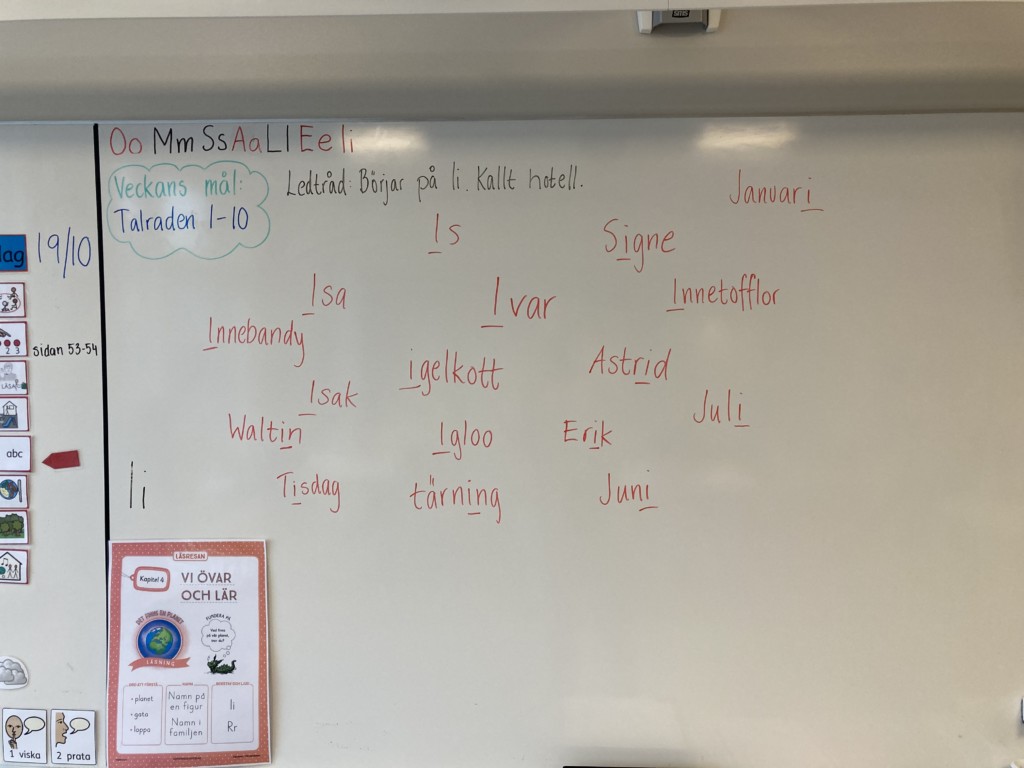 Oo Mm Ss Aa Ll Ee Ii
Veckans mål:
Talraden 1-10
Ledtråd: Börjar på Ii. Kallt hotell.
Januari
Is
Signe
lag
19/10
Isa
Ivar
Innetofflor
Innebandy
sidan 53-54
igelkott
Astrid
Isak
Juli
Waltin
Igloo
Erik
abc
Ii
Tisdag
tärning
Juni
LÄSRESAN
Kapitel 4
VI ÖVAR
OCH LÄR
DET FINNS EN PLANET
LÄSNING
FUNDERA PÅ
• planet
• gata
• loppa
Namn på
en figur
Namn i
familjen
Ii
Rr
1 viska
2 prata